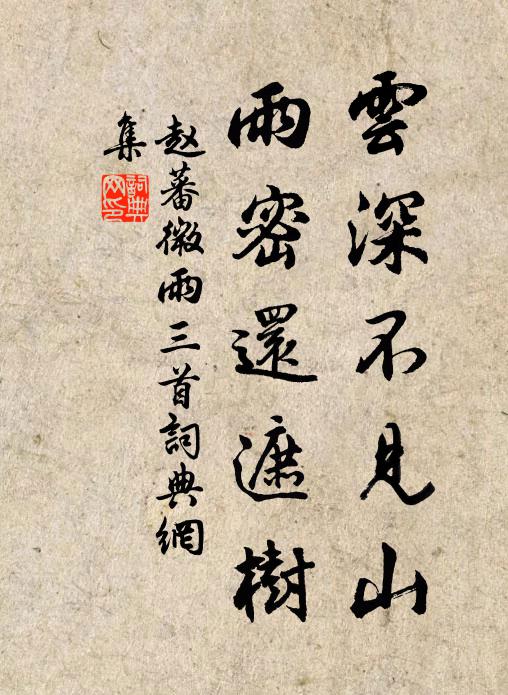 雲深不見山
雨密還遮樹
赵蕃微雨三首詞典網
集
詞典网印